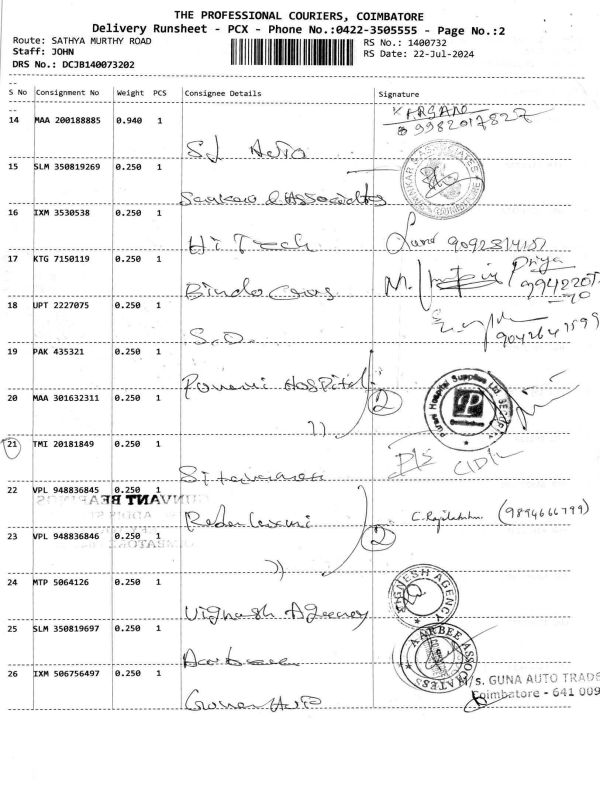 THE PROFESSIONAL COURIERS, COIMBATORE
Delivery Runsheet - PCX - Phone No.:0422-3505555 - Page No.:2
Route: SATHYA MURTHY ROAD
RS No.: 1400732
Staff: JOHN
RS Date: 22-Jul-2024
DRS No.: DCJB140073202
S No Consignment No Weight PCS Consignee Details Signature
14 MAA 200188885 0.940 1 SJ Auto
9982017827
15 SLM 350819269 0.250 1 Sankar & Associates
SANKAR & ASSOCIATES
16 IXM 3530538 0.250 1 Hi Tech
17 KTG 7150119 0.250 1
Priya
18 UPT 2227075 0.250 1 S.O.
19 PAK 435321 0.250 1 Hospital
20 MAA 301632311 0.250 1 )) 2
Purani Hospital Supplies Ltd
P
21 TMI 20181849 0.250 1
22 VPL 948836845 0.250 1
(9894666799)
23 VPL 948836846 0.250 1 )) 2
24 MTP 5064126 0.250 1 Vignesh Agency
VIGNESH AGENCY
25 SLM 350819697 0.250 1
AARBEE ASSOCIATES
26 IXM 506756497 0.250 1 Auto
/s. GUNA AUTO TRADE
Coimbatore - 641 009